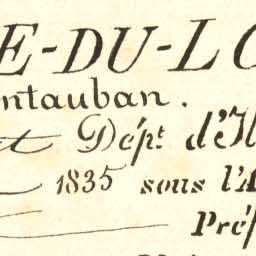 E-DU-LO
ntauban.
et Dépt d'Il
1835 sous l'A
Préf